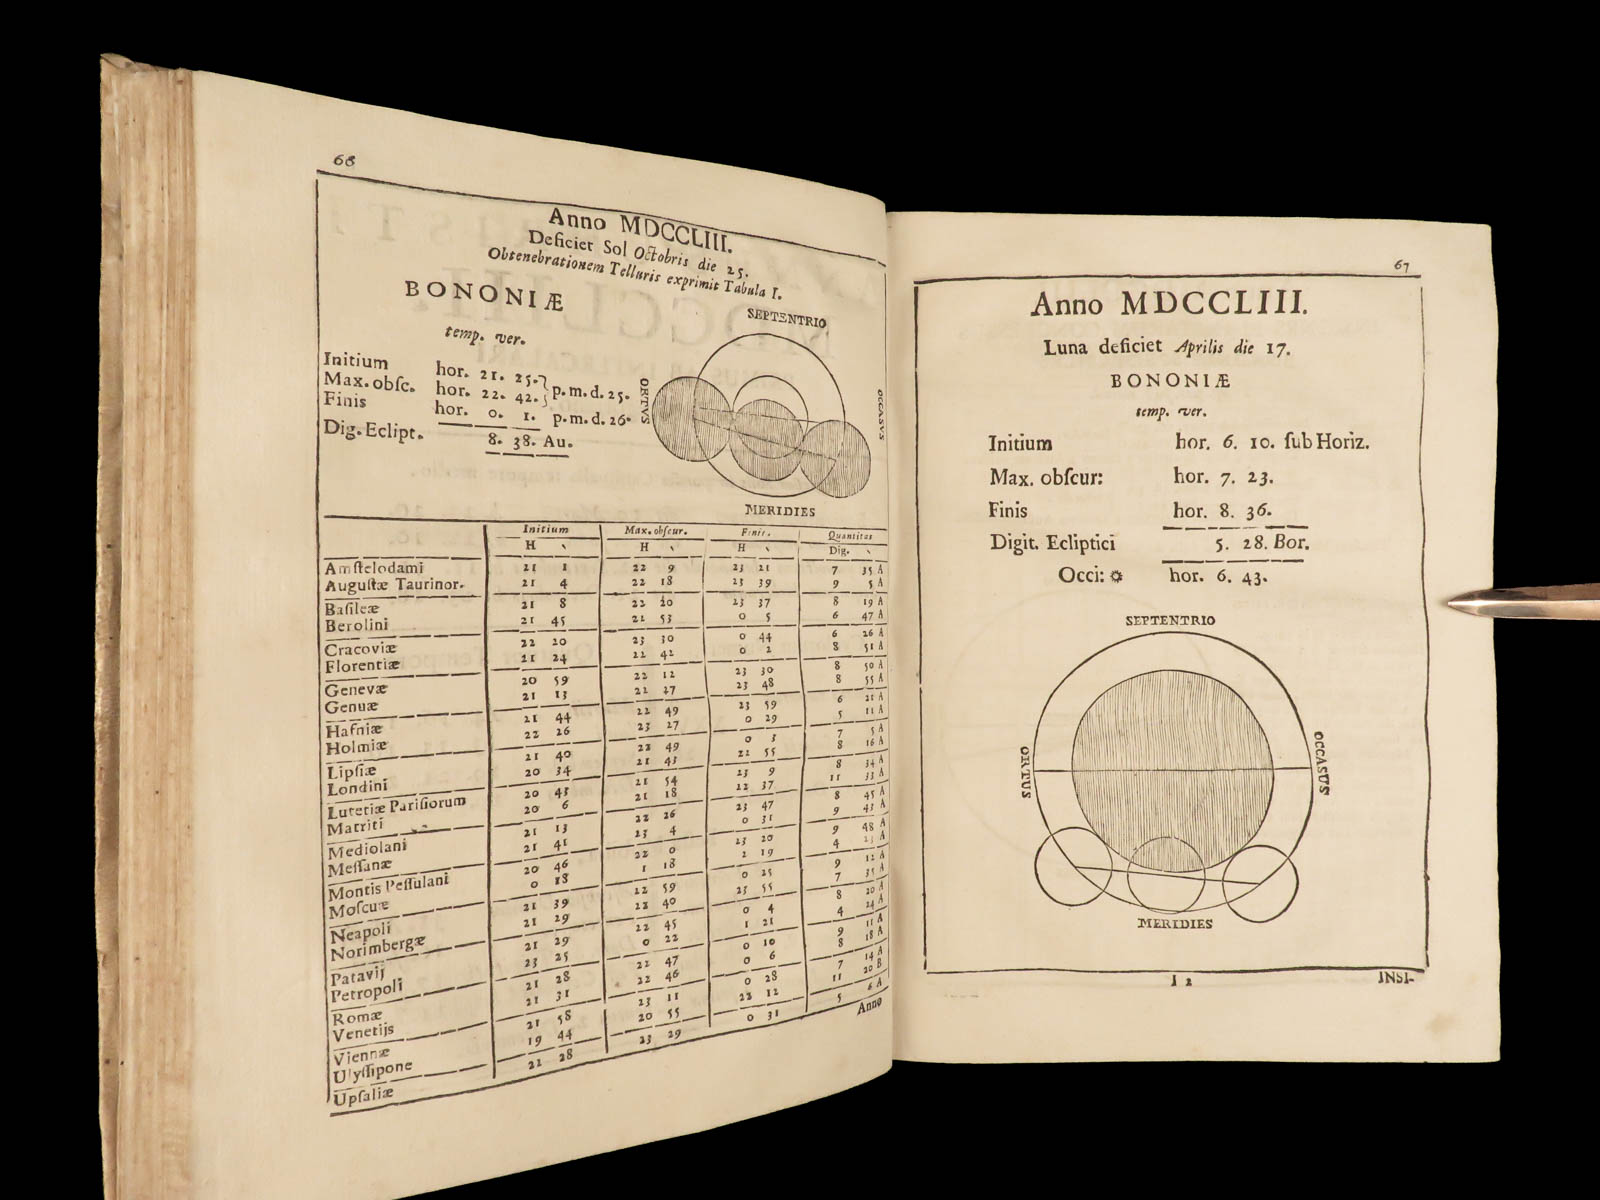 66
Anno MDCCLIII.
Deficiet Sol Octobris die 25.
Obtenebrationem Telluris exprimit Tabula I.
BONONIÆ
temp. ver.
Initium hor. 21. 25. } p.m.d. 25.
Max. obſc. hor. 22. 42.
Finis hor. 0. 1. p.m.d. 26.
Dig. Eclipt. 8. 38. Au.
SEPTENTRIO
ORTVS
OCCASVS
MERIDIES
Initium Max. obſcur. Finis. Quantitas
H ` H ` H ` Dig. `
Amſtelodami 21 1 22 9 23 21 7 35 A
Auguſtæ Taurinor. 21 4 22 18 23 39 9 5 A
Baſileæ 21 8 22 20 23 37 8 19 A
Berolini 21 45 21 53 0 5 6 47 A
Cracoviæ 22 20 23 30 0 44 6 26 A
Florentiæ 21 24 22 42 0 2 8 51 A
Genevæ 20 59 22 12 23 30 8 50 A
Genuæ 21 13 22 27 23 48 8 55 A
Hafniæ 21 44 22 49 23 59 6 21 A
Holmiæ 22 26 23 27 0 29 5 11 A
Lipſiæ 21 40 22 49 0 3 7 5 A
Londini 20 34 21 43 22 55 8 16 A
Lutetiæ Pariſiorum 20 43 21 54 23 9 8 34 A
Matriti 20 6 21 18 22 37 11 33 A
Mediolani 21 13 22 26 23 47 8 45 A
Meſſanæ 21 41 23 4 0 31 9 43 A
Montis Peſſulani 20 46 22 0 23 20 9 48 A
Moſcuæ 0 18 1 18 2 19 4 23 A
Neapoli 21 39 22 59 0 25 9 12 A
Norimbergæ 21 29 22 40 23 55 7 35 A
Patavij 21 29 22 45 0 4 8 20 A
Petropoli 23 25 0 22 1 21 4 24 A
Romæ 21 28 22 47 0 10 9 11 A
Venetijs 21 31 22 46 0 6 8 18 A
Viennæ 21 58 23 11 0 28 7 14 A
Ulyſſipone 19 44 20 55 22 12 11 20 B
Upſaliæ 21 28 23 29 0 31 5 6 A
Anno
67
Anno MDCCLIII.
Luna deficiet Aprilis die 17.
BONONIÆ
temp. ver.
Initium hor. 6. 10. ſub Horiz.
Max. obſcur: hor. 7. 23.
Finis hor. 8. 36.
Digit. Ecliptici 5. 28. Bor.
Occi: ☼ hor. 6. 43.
SEPTENTRIO
ORTUS
OCCASUS
MERIDIES
I 2 INSI-